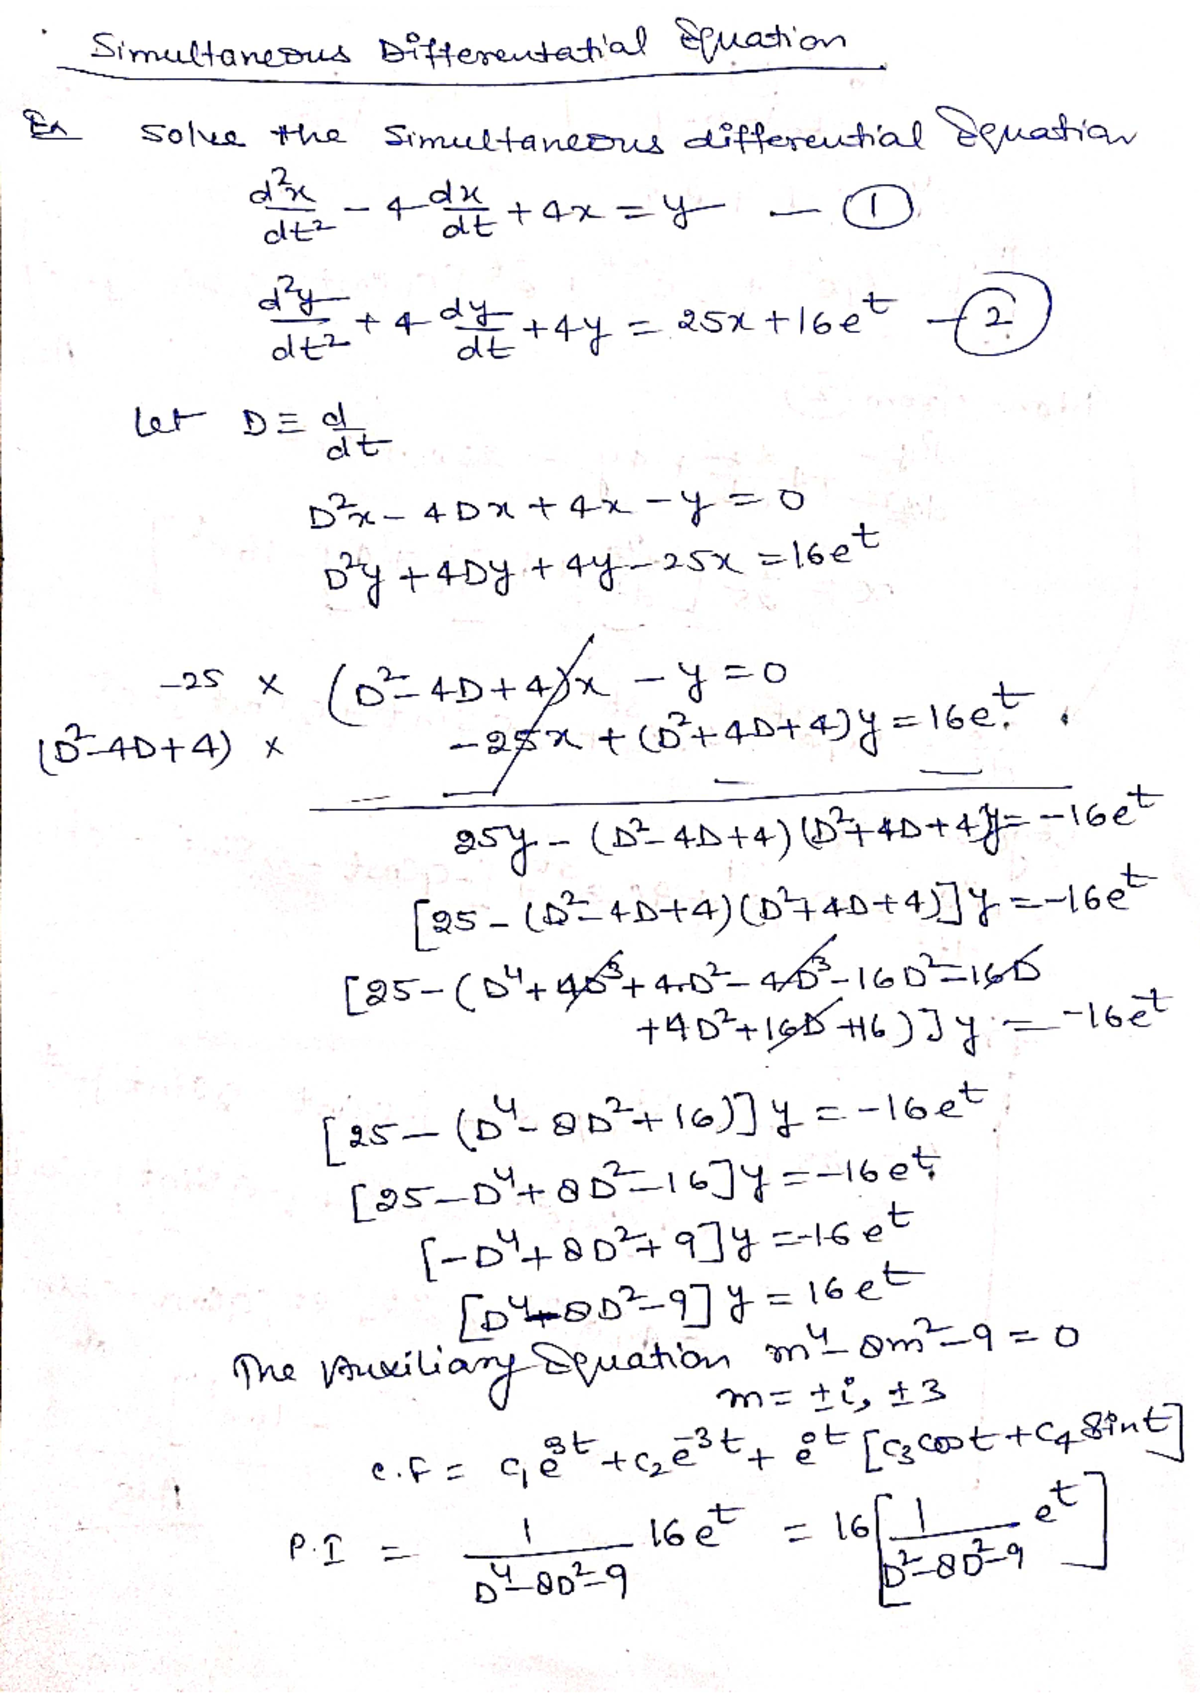 Simultaneous Differentatial Equation
Ex Solve the Simultaneous differential Equation
d²x/dt² - 4 dx/dt + 4x = y — ①
d²y/dt² + 4 dy/dt + 4y = 25x + 16e^t — ②
Let D ≡ d/dt
D²x - 4Dx + 4x - y = 0
D²y + 4Dy + 4y - 25x = 16e^t
-25 × (D² - 4D + 4)x - y = 0
(D² - 4D + 4) × -25x + (D² + 4D + 4)y = 16e^t.
25y - (D² - 4D + 4)(D² + 4D + 4)y = -16e^t
[25 - (D² - 4D + 4)(D² + 4D + 4)]y = -16e^t
[25 - (D⁴ + 4D³ + 4D² - 4D³ - 16D² - 16D
+ 4D² + 16D + 16)]y = -16e^t
[25 - (D⁴ - 8D² + 16)]y = -16e^t
[25 - D⁴ + 8D² - 16]y = -16e^t
[-D⁴ + 8D² + 9]y = -16e^t
[D⁴ - 8D² - 9]y = 16e^t
The Auxiliary Equation m⁴ - 8m² - 9 = 0
m = ±i, ±3
C.F = c₁e^3t + c₂e^-3t + e^0t [c₃ cost + c₄ Sint]
P.I = 1/(D⁴ - 8D² - 9) 16e^t = 16[1/(D² - 8D² - 9) e^t]